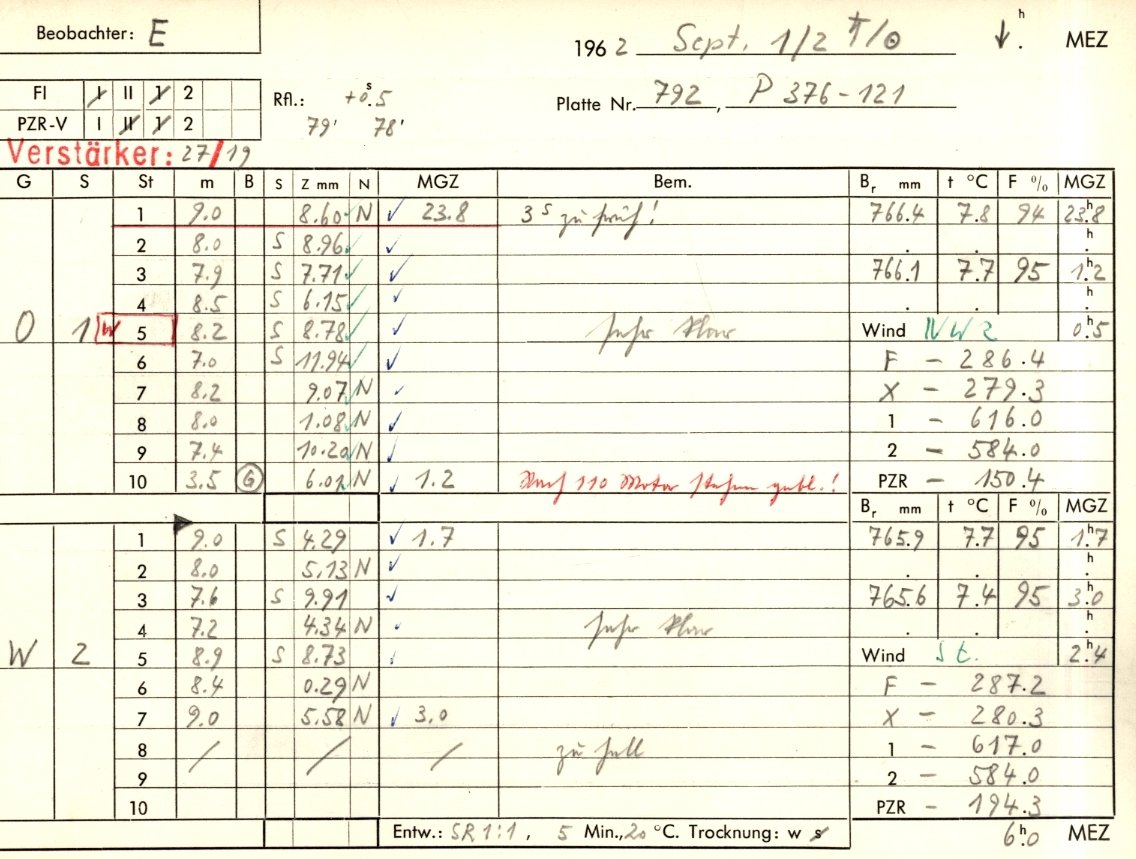 Beobachter: E
1962 Sept. 1/2 ♄/☉ ↓ h . MEZ
FI I II 1 2
PZR-V I II 1 2
Rfl.: +0s.5
79' 78'
Platte Nr. 792, P 376-121
Verstärker: 27/19
G S St m B S Z mm N MGZ Bem. Br mm t °C F % MGZ
1 9.0 8.60 N ✓ 23.8 3s zu früh! 766.4 7.8 94 23h.8
2 8.0 S 8.96 ✓ . . h .
3 7.9 S 7.71 ✓ 766.1 7.7 95 1h.2
4 8.5 S 6.15 ✓ . . h .
O 1 W 5 8.2 S 8.78 ✓ sehr klar Wind NW 2 0h.5
6 7.0 S 11.94 ✓ F – 286.4
7 8.2 9.07 N ✓ X – 279.3
8 8.0 1.08 N ✓ 1 – 616.0
9 7.4 10.20 N ✓ 2 – 584.0
10 3.5 G 6.02 N ✓ 1.2 Nach 110 Motor stehen gebl.! PZR – 150.4
Br mm t °C F % MGZ
1 9.0 S 4.29 ✓ 1.7 765.9 7.7 95 1h.7
2 8.0 5.13 N ✓ . . h .
3 7.6 S 9.91 ✓ 765.6 7.4 95 3h.0
4 7.2 4.34 N ✓ sehr klar . . h .
W 2 5 8.9 S 8.73 ✓ Wind St. 2h.4
6 8.4 0.29 N F – 287.2
7 9.0 5.58 N ✓ 3.0 X – 280.3
8 / / / zu hell 1 – 617.0
9 2 – 584.0
10 PZR – 194.3
Entw.: SR 1:1, 5 Min., 20 °C. Trocknung: w s 6h.0 MEZ